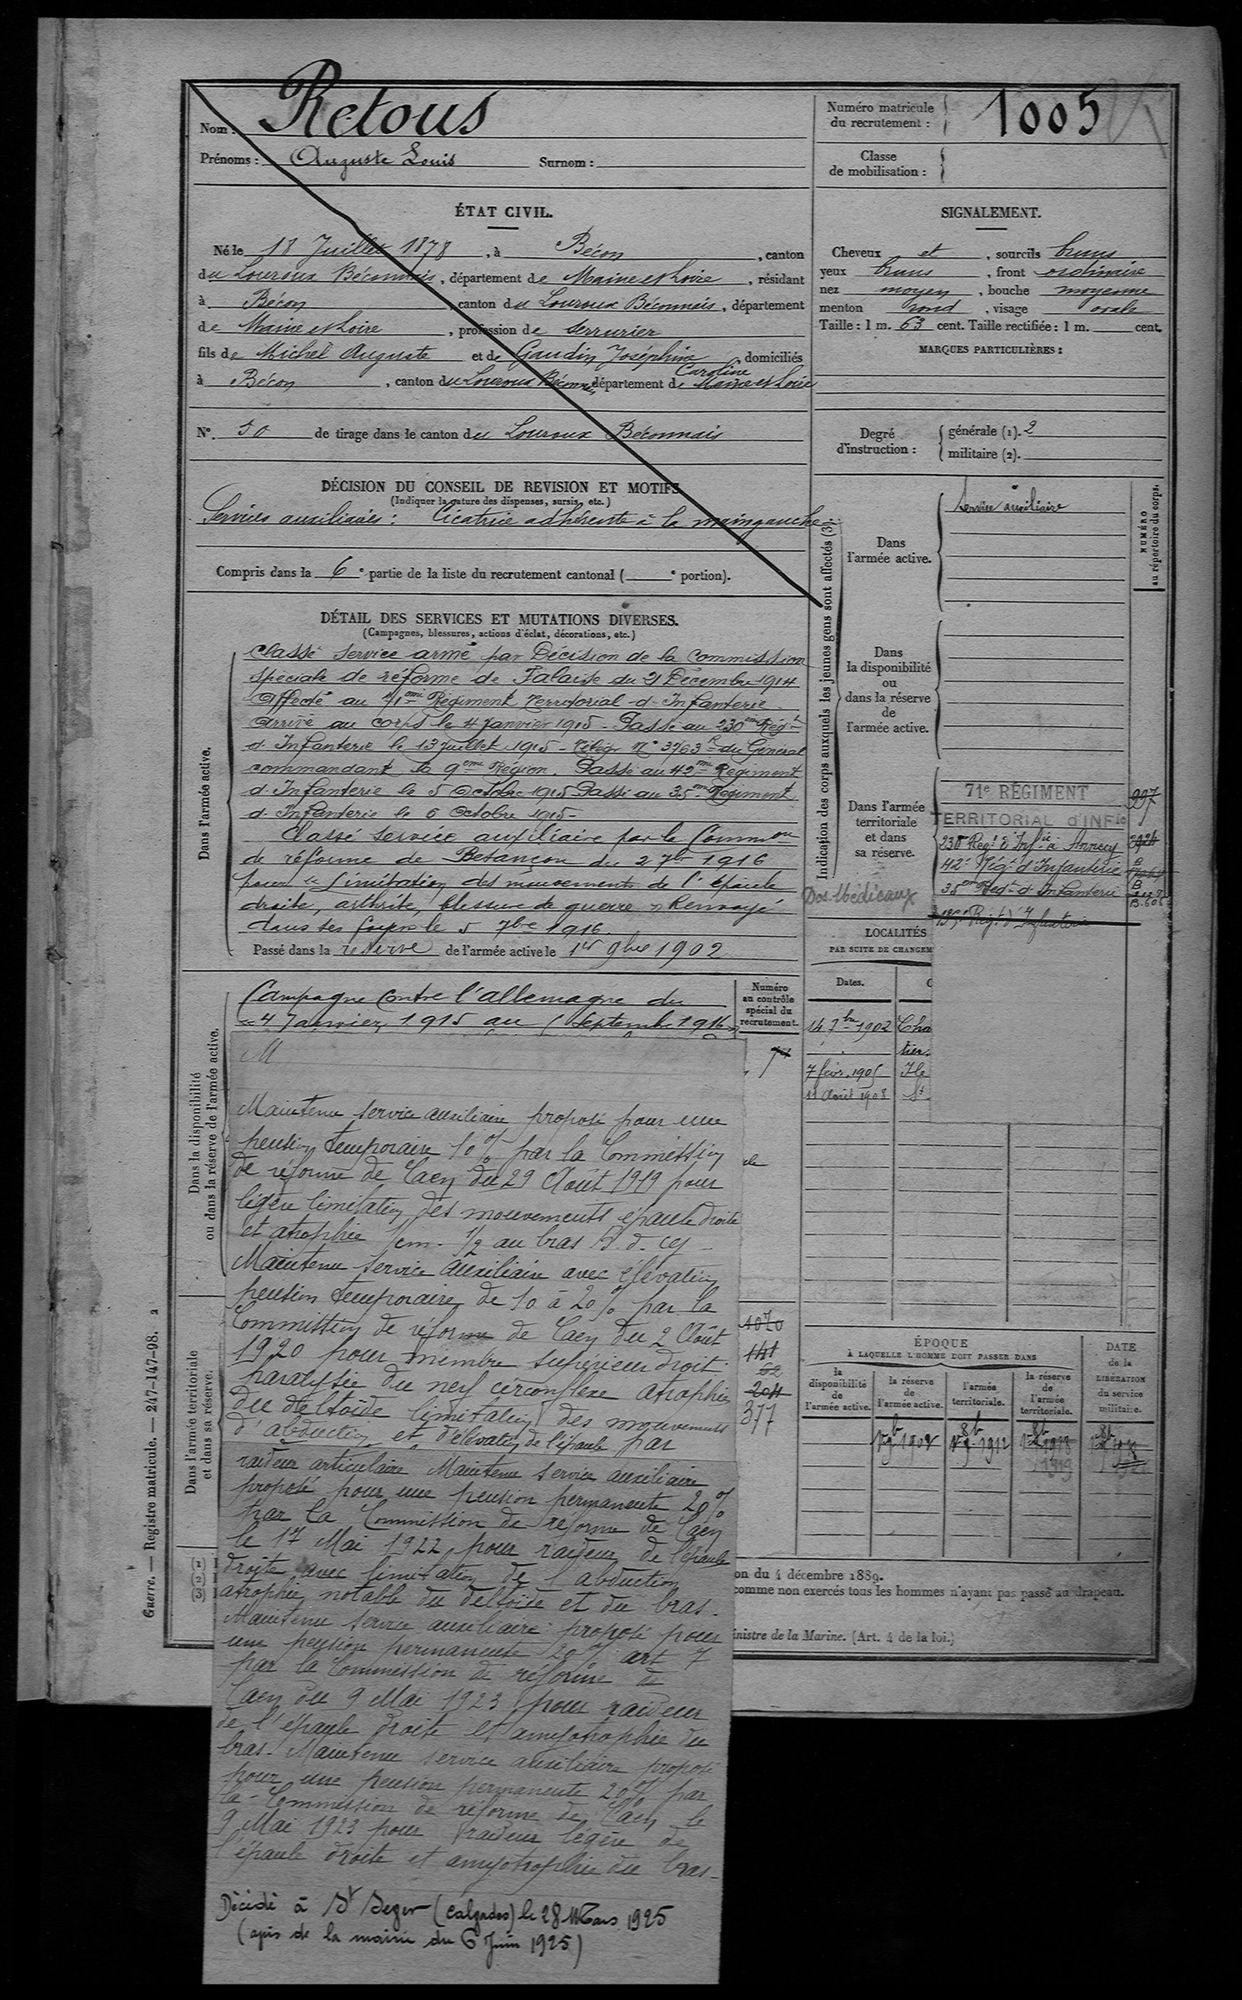 Nom : Retous
Prénoms : Auguste Louis Surnom :
Numéro matricule du recrutement : 1005
Classe de mobilisation :
ÉTAT CIVIL.
Né le 18 Juillet 1878, à Bécon, canton
du Louroux Béconnais, département de Maine et Loire, résidant
à Bécon, canton du Louroux Béconnais, département
de Maine et Loire, profession de serrurier
fils de Michel Auguste et de Gaudin Joséphine Caroline domiciliés
à Bécon, canton du Louroux Béconnais, département de Maine et Loire
N° 50 de tirage dans le canton du Louroux Béconnais
SIGNALEMENT.
Cheveux et, sourcils bruns
yeux bruns, front ordinaire
nez moyen, bouche moyenne
menton rond, visage ovale
Taille : 1 m. 63 cent. Taille rectifiée : 1 m. cent.
MARQUES PARTICULIÈRES :
Degré d'instruction : générale (1). 2
militaire (2).
DÉCISION DU CONSEIL DE REVISION ET MOTIFS
(Indiquer la nature des dispenses, sursis, etc.)
Services auxiliaires : Cicatrice adhérente à la main gauche
Compris dans la 6e partie de la liste du recrutement cantonal ( e portion).
DÉTAIL DES SERVICES ET MUTATIONS DIVERSES.
(Campagnes, blessures, actions d'éclat, décorations, etc.)
Dans l'armée active.
Classé service armé par Décision de la Commission
spéciale de réforme de Falaise du 21 Décembre 1914
Affecté au 71eme Régiment Territorial d'Infanterie
Arrivé au corps le 4 Janvier 1915 - Passé au 230em Régt
d'Infanterie le 13 juillet 1915 - N° 3763 du Général
commandant la 9eme Région. Passé au 42me Régiment
d'Infanterie le 5 Octobre 1915 Passé au 35me Régiment
d'Infanterie le 6 Octobre 1915 -
Classé service auxiliaire par la Common
de réforme de Besançon du 2 7bre 1916
pour "Limitation des mouvements de l'épaule
droite, arthrite, blessure de guerre" Renvoyé
dans ses foyers le 5 7bre 1916.
Passé dans la réserve de l'armée active le 1er 9bre 1902
Indication des corps auxquels les jeunes gens sont affectés (3).
NUMÉRO au répertoire du corps.
Dans l'armée active.
Service auxiliaire
Dans la disponibilité ou dans la réserve de l'armée active.
Dans l'armée territoriale et dans sa réserve.
71e RÉGIMENT 997
TERRITORIAL d'INFie
230e Régt d'Infie à Annecy
42e Régt d'Infanterie
35e Régt d'Infanterie
Régt d'Infanterie
Dos Médicaux
LOCALITÉS
PAR SUITE DE CHANGEM
Dates.
14 7bre 1902 Cha
7 févr. 1905
11 Août 1908 St
Dans la disponibilité ou dans la réserve de l'armée active.
Campagne contre l'allemagne du
4 Janvier 1915 au Septembre 1916
Numéro au contrôle spécial du recrutement.
M
Maintenu service auxiliaire proposé pour une
pension temporaire 10% par la Commission
de réforme de Caen du 29 Août 1919 pour
légère limitation des mouvements épaule droite
et atrophie 1 cm. 1/2 au bras
Maintenu service auxiliaire avec élévation
pension temporaire de 10 à 20% par la
Commission de réforme de Caen du 2 Août
1920 pour membre supérieur droit
paralysie du nerf circonflexe atrophie
du deltoïde limitation des mouvements
d'abduction et d'élévation de l'épaule par
raideur articulaire Maintenu service auxiliaire
proposé pour une pension permanente 20%
par la Commission de réforme de Caen
le 17 Mai 1922 pour raideur de l'épaule
droite avec limitation de l'abduction
atrophie notable du deltoïde et du bras.
Maintenu service auxiliaire proposé pour
une pension permanente 20% art 7
par la Commission de réforme de
Caen du 9 Mai 1923 pour raideur
de l'épaule droite et amyotrophie du
bras. Maintenu service auxiliaire proposé
pour une pension permanente 20% par
la Commission de réforme de Caen le
9 Mai 1923 pour raideur légère de
l'épaule droite et amyotrophie du bras -
Décédé à St (calvados) le 28 Mars 1925
(avis de la mairie du 6 Juin 1925)
Dans l'armée territoriale et dans sa réserve.
1070
141
204
377
ÉPOQUE
À LAQUELLE L'HOMME DOIT PASSER DANS
la disponibilité de l'armée active.
la réserve de l'armée active.
l'armée territoriale.
la réserve de l'armée territoriale.
DATE de la LIBÉRATION du service militaire.
(1)
(2)
(3)
on du 4 décembre 1889.
comme non exercés tous les hommes n'ayant pas passé au drapeau.
inistre de la Marine. (Art. 4 de la loi.)
Guerre. — Registre matricule. — 247-147-98. 2